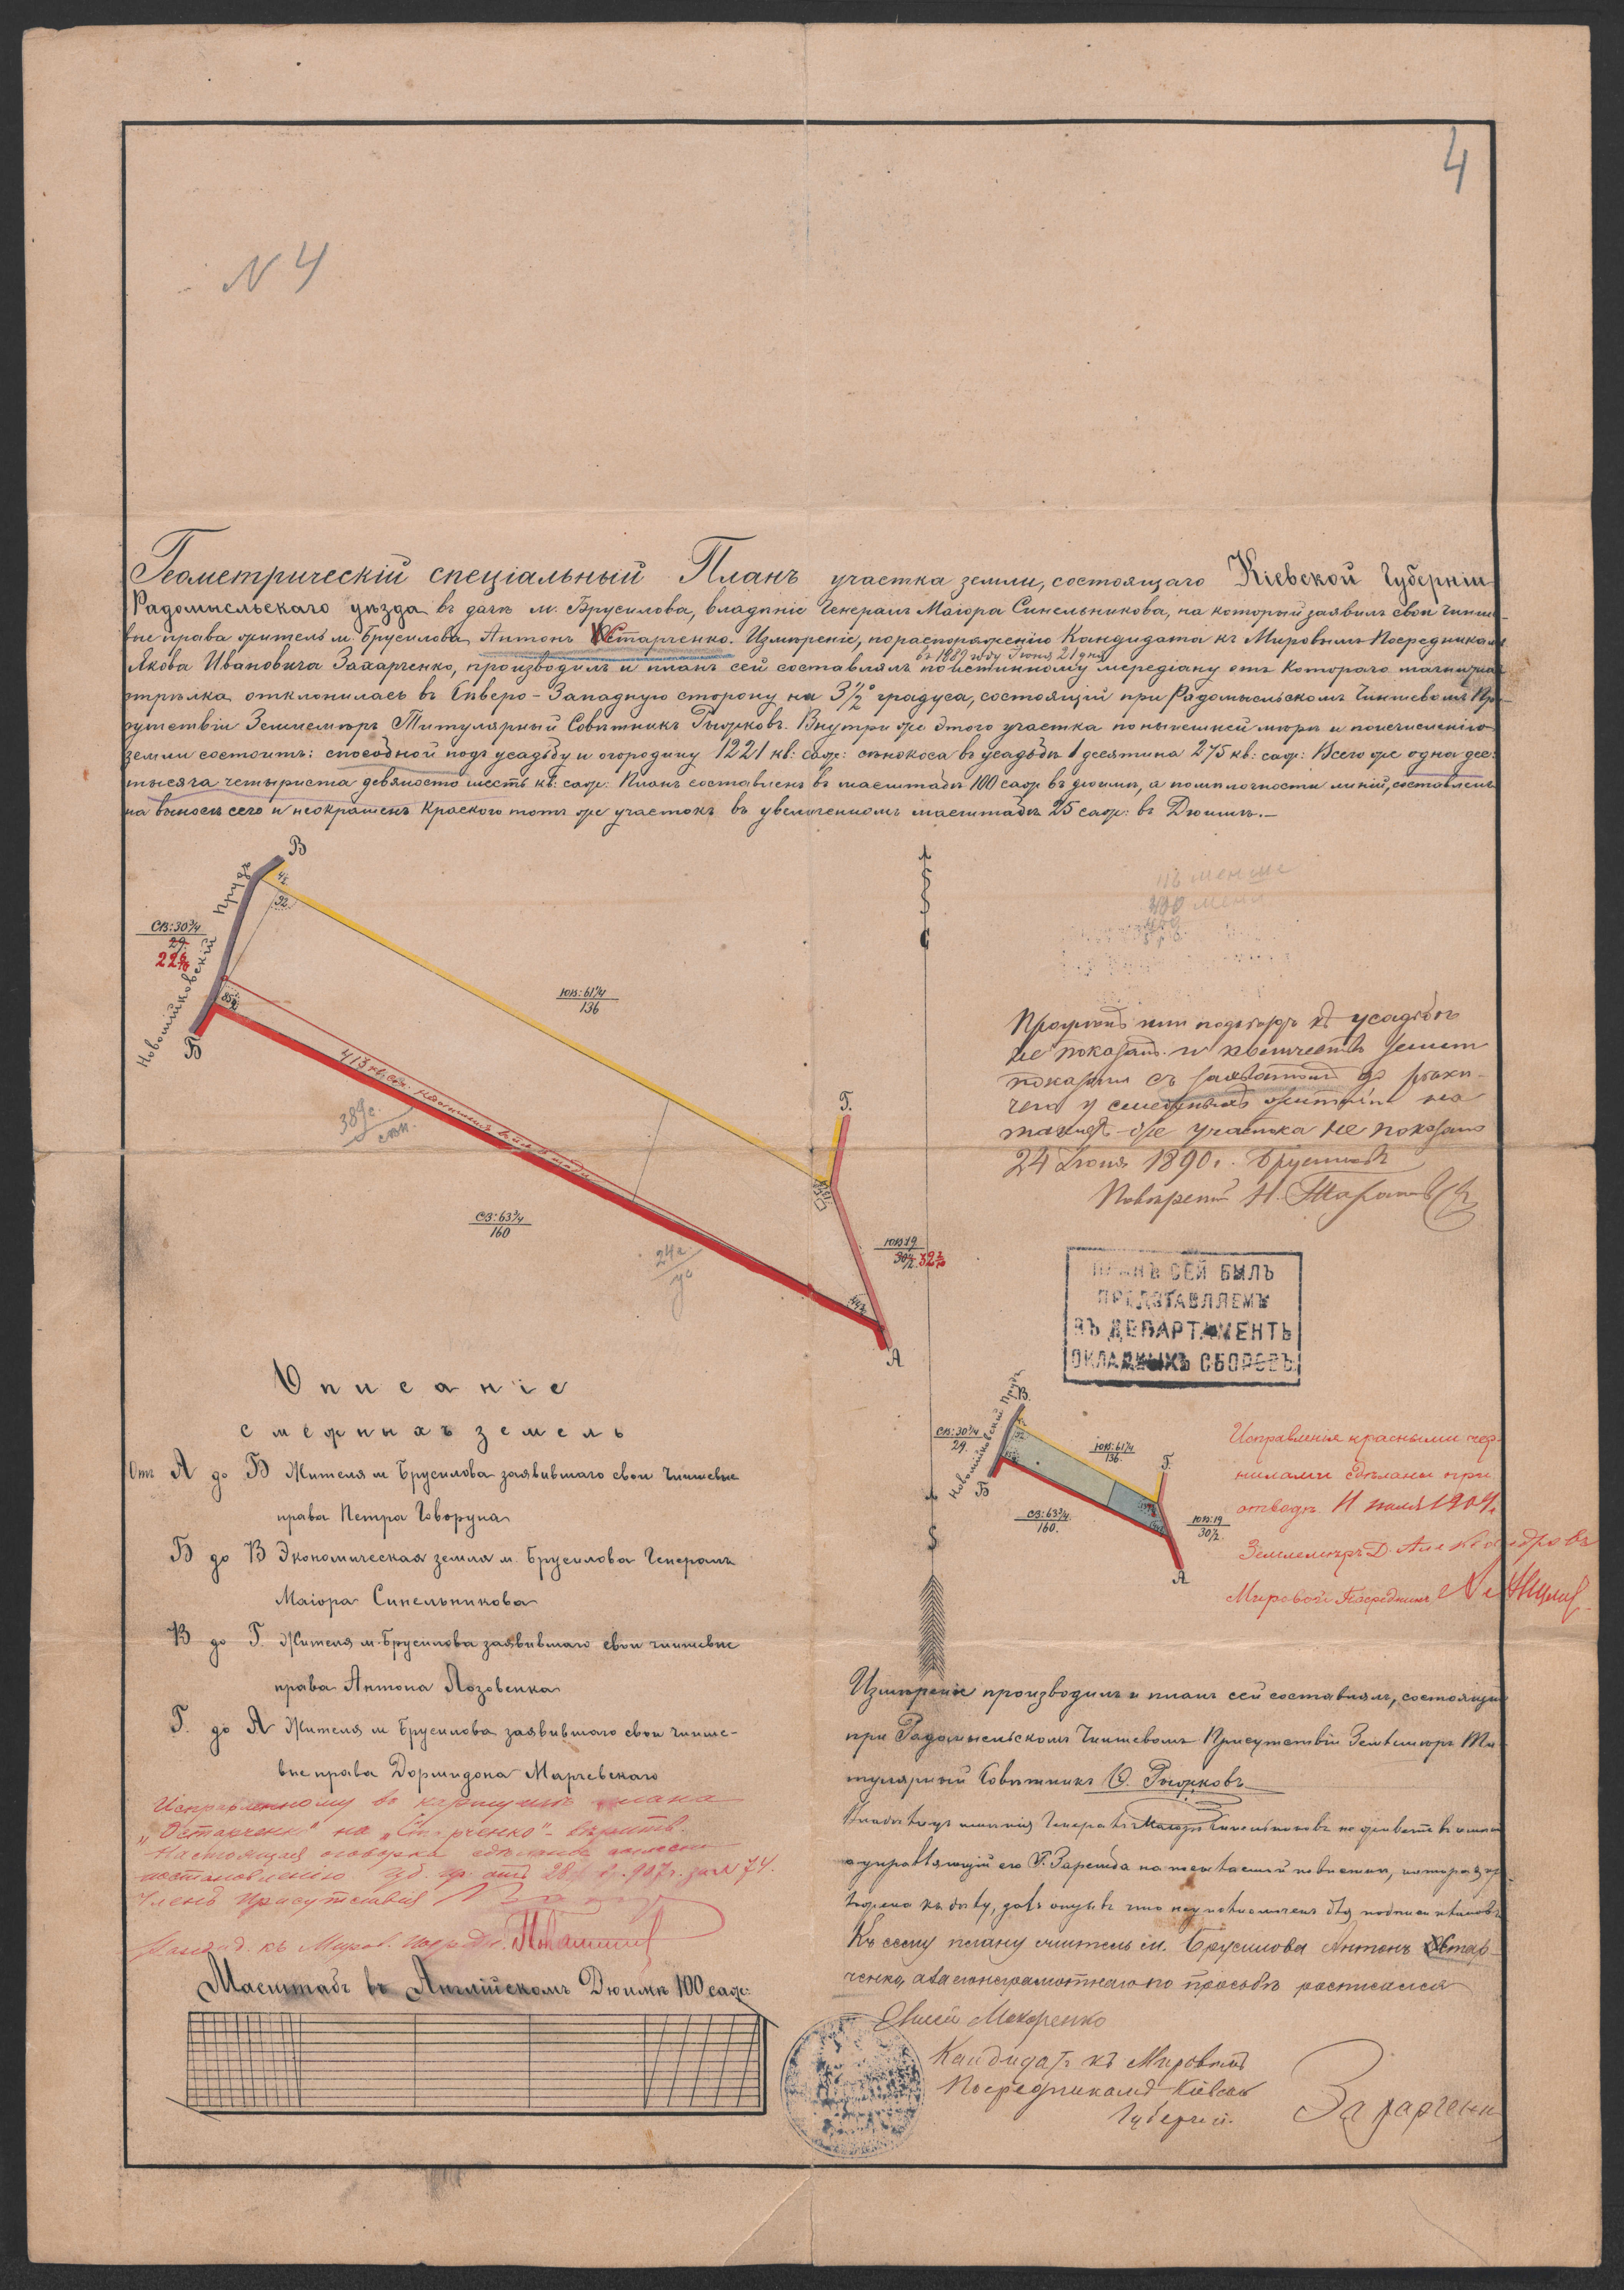 4
N 4
Геометрическій спеціальный Планъ участка земли, состоящаго Кіевской Губерніи
Радомысльскаго уѣзда въ дачѣ м. Брусилова, владѣніе Генералъ Маіора Синельникова, на который заявилъ свои чинше-
вые права житель м. Брусилова Антонъ Старченко. Измѣреніе, по распоряженію Кандидата къ Мировымъ Посредникамъ
въ 1889 году Іюня 21 дня
Якова Ивановича Захарченко, производилъ и планъ сей составлялъ по истинному мередіану отъ котораго магнитная
стрѣлка отклонилась въ Сѣверо-Западную сторону на 3½° градуса, состоящій при Радомысльскомъ Чиншевомъ При-
сутствіи Землемѣръ Титулярный Совѣтникъ Рыжковъ. Внутри же этого участка по нынешней мѣрѣ и по исчисленію
земли состоитъ: способной подъ усадьбу и огородину 1221 кв: саж: сѣнокоса въ усадьбѣ 1 десятина 275 кв: саж: Всего же одна дес:
тысяча четыриста девяносто шесть кв: саж: Планъ составленъ въ масштабѣ 100 саж въ дюймѣ, а по мѣлочности линій, составленъ
на выносъ сего и неокрашенъ краскою тотъ же участокъ въ увеличенномъ масштабѣ 25 саж: въ Дюймѣ.—
В
Прудъ
Новошійковскій
СВ: 30¾
29.
22
4½
92
85½
Б
ЮВ: 61¼
136
413 кв. саж.
38 де.
сѣн.
СЗ: 63¾
160
24 г.
ус
Г.
ЮВ 19
30½
32
44¾
А
меньше
400
Проѣздъ или подъѣздъ къ усадьбѣ
не показанъ и количество земли
показано съ
чего у смежныхъ жителей на
такихъ-же участка не показано
24 Іюня 1890 г. Брусиловъ
Повѣренный Н.
ПЛАНЪ СЕЙ БЫЛЪ
ПРЕДСТАВЛЯЕМЪ
ВЪ ДЕПАРТАМЕНТЪ
ОКЛАДНЫХЪ СБОРОВЪ
В.
Новошійковскій Прудъ
СВ: 30¾
29.
ЮВ: 61¼
136.
Г.
Б
СЗ: 63¾
160.
ЮВ: 19
30½.
А
Исправленія красными чер-
нилами сдѣланы при
отводѣ 11 іюля 1904 г.
Землемѣръ Д. Александровъ
Мировой Посредникъ
Описаніе
смежныхъ земель
Отъ А до Б Жителя м Брусилова заявившаго свои чиншевые
права Петра Говоруна
Б до В Экономическая земля м. Брусилова Генералъ
Маіора Синельникова
В до Г. Жителя м. Брусилова заявившаго свои чиншевые
права Антона Лозовенка
Г. до А Жителя м Брусилова заявившаго свои чинше-
вые права Дормидона Марчевскаго
Исправленному въ плана
„Остапченко" на „Старченко" - вѣрить.
Настоящая оговорка сдѣлана согласно
постановленію 28 907 г. за № 74.
Членъ Присутствія
Кандид. къ Миров. Посред.
Масштабъ въ Англійскомъ Дюймѣ 100 саж:
Измѣреніе производилъ и планъ сей составлялъ, состоящій
при Радомысльскомъ Чиншевомъ Присутствіи Землемѣръ Ти-
тулярный Совѣтникъ Ѳ. Рыжковъ
Владѣлецъ имѣнія Генералъ Маіоръ Синельниковъ не живетъ въ имѣніи
а управляющій его Г. Заремба на
къ дѣлу, далъ отзывъ что не уполномоченъ для подписи плановъ
Къ сему плану житель м. Брусилова Антонъ Стар-
ченко, а за его неграмотнаго по просьбѣ росписался
Макаренко
Кандидатъ къ Мировымъ
Посредникамъ Кіевск.
Губерніи. Захарченко